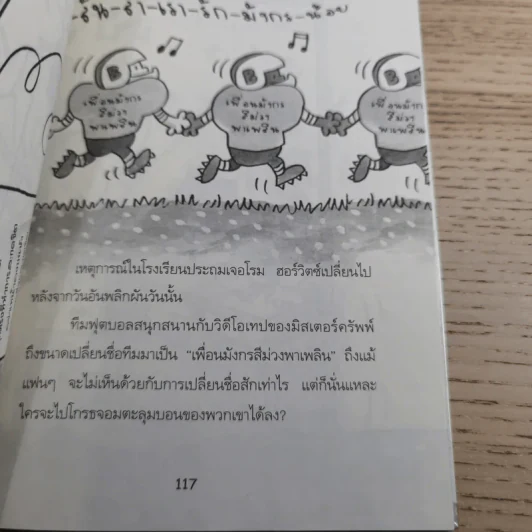 -รัน-ลา-เรา-รัก-มังกร-น้อย
B
B
B
เพื่อนมังกร
สีม่วง
พาเพลิน
เพื่อนมังกร
สีม่วง
พาเพลิน
เพื่อนมังกร
สีม่วง
พาเพลิน
เหตุการณ์ในโรงเรียนประถมเจอโรม ฮอร์วิตซ์เปลี่ยนไป
หลังจากวันอันพลิกผันวันนั้น
ทีมฟุตบอลสนุกสนานกับวิดีโอเทปของมิสเตอร์ครัพพ์
ถึงขนาดเปลี่ยนชื่อทีมมาเป็น "เพื่อนมังกรสีม่วงพาเพลิน" ถึงแม้
แฟนๆ จะไม่เห็นด้วยกับการเปลี่ยนชื่อสักเท่าไร แต่ก็นั่นแหละ
ใครจะไปโกรธจอมตะลุมบอนของพวกเขาได้ลง?
117